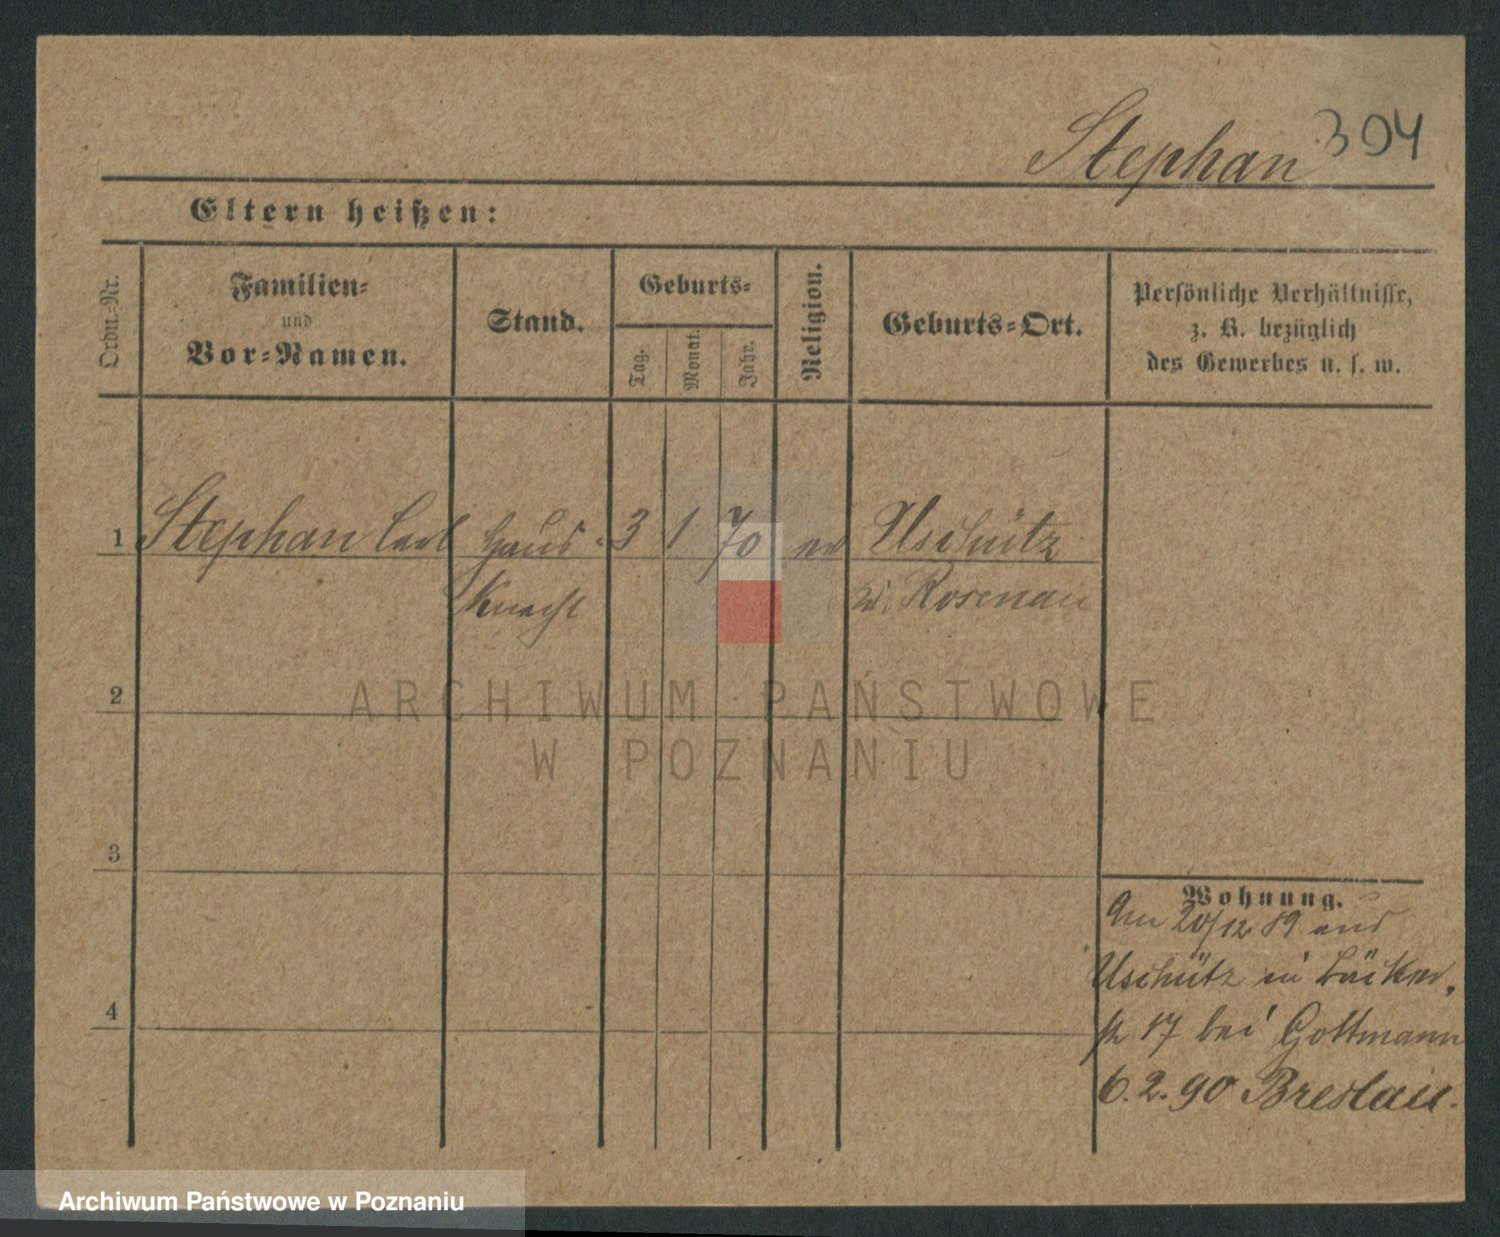 Stephan 394
Eltern heißen:
Ordn.-Nr.
Familien-
und
Vor-Namen.
Stand.
Geburts-
Tag.
Monat.
Jahr.
Religion.
Geburts-Ort.
Persönliche Verhältnisse,
z. B. bezüglich
des Gewerbes u. s. w.
1 Stephan Carl Haus- 3 1 70 ev Uschütz
Knecht Kr. Rosenau
2
ARCHIWUM PAŃSTWOWE
W POZNANIU
3
Wohnung.
Am 20/12 89 aus
Uschütz in Bäcker,
str 17 bei Gottmann
4
6.2.90 Breslau.
Archiwum Państwowe w Poznaniu